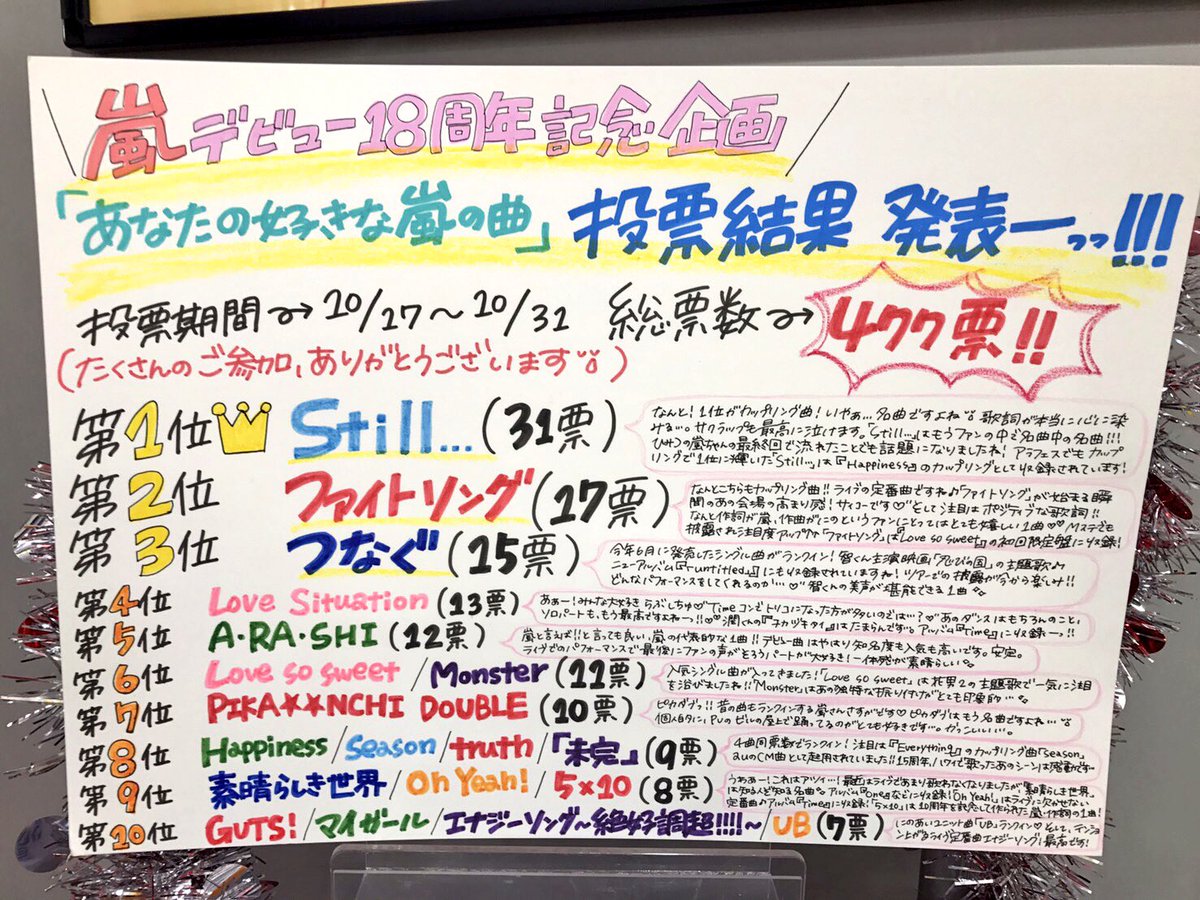 嵐デビュー18周年記念企画
「あなたの好きな嵐の曲」投票結果 発表ーっっ!!!
投票期間→10/27〜10/31 総票数→477票!!
(たくさんのご参加、ありがとうございます)
第1位 Still...(31票)
なんと!1位がカップリング曲!いやぁ…名曲ですよね 歌詞が本当に心に染
みる…。サクラップも最高に泣けます。「Still...」はもうファンの中で名曲中の名曲!!!
ひみつの嵐ちゃんの最終回で流れたことでも話題になりましたね!アラフェスでもカップ
リングで1位に輝いた「Still...」は『Happiness』のカップリングとして収録されています!
第2位 ファイトソング(17票)
なんとこちらもカップリング曲!!ライブの定番曲ですね♪「ファイトソング」が始まる瞬
間のあの会場の高まり感!サイコーです♡そして注目はポジティブな歌詞!!
なんと作詞が嵐、作曲がにのというファンにとってはとても嬉しい1曲♡♡Mステでも
披露され注目度アップ↑「ファイトソング」は『Love so sweet』の初回限定盤に収録!
第3位 つなぐ(15票)
今年6月に発売したシングル曲がランクイン!智くん主演映画「忍びの国」の主題歌♪
ニューアルバム『「untitled」』にも収録されていますね!ツアーでの披露が今から楽しみ!!
どんなパフォーマンスをしてくれるのか…♡智くんの美声が堪能できる1曲
第4位 Love Situation(13票)
あぁー!みんな大好き らぶしちゅ♡Timeコンでトリコになった方が多いのでは…?あのダンスはもちろんのこと、
ソロパートも、もう最高ですよねーっ!!潤くんの『 はたまらんです アルバム『Time』に収録ーっ!!
第5位 A・RA・SHI(12票)
嵐と言えば!!と言っても良い、嵐の代表的な1曲!!デビュー曲はやはり知名度も人気も高いです。安定。
ライブでのパフォーマンスで最後にファンの声がそろうパートが大好き!一体感が素晴らしい
第6位 Love so sweet/Monster(11票)
人気シングル曲が入ってきました!「Love so sweet」は花男2の主題歌で一気に注目
を浴びましたね!!「Monster」はあの独特な振り付けがとても印象的…
第7位 PIKA★★NCHI DOUBLE(10票)
ピカダブっ!!昔の曲もランクインする嵐さんさすがです♡ピカダブはもう名曲ですよね…
個人的にPVのビルの屋上で踊ってるのがとても好きです…。かっこいい…。
第8位 Happiness/season/truth/「未完」(9票)
4曲同票数でランクイン!注目は『Everything』のカップリング曲「season」
auのCM曲として起用されていました!!15周年ハワイで歌ったあのシーンは感動です
第9位 素晴らしき世界/Oh Yeah!/5×10(8票)
うわぁー!これはアツイ…!最近はライブであまり歌わなくなりましたが「素晴らしき世界」
は知る人ぞ知る名曲 アルバム『One』などに収録!「Oh Yeah!」はライブに欠かせない
定番曲♪アルバム『Time』に収録!「5×10」は10周年を記念して作られた嵐作詞の1曲!
第10位 GUTS!/マイガール/エナジーソング〜絶好調超!!!!〜/UB(7票)
にのあいユニット曲「UB」ランクイン♡そして、テンション
上がるライブ定番曲エナジーソング!最高です!